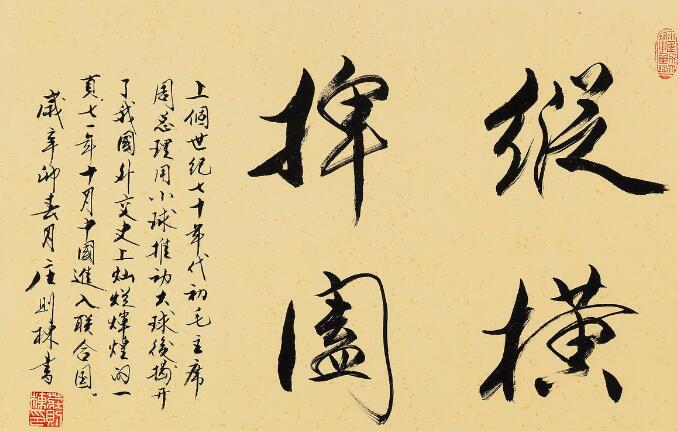 縱横
捭阖
上個世纪七十年代初毛主席
周总理用小球推动大球後揭开
了我國外交史上灿烂煇煌的一
頁七一年十月中國進入联合国。
歲辛卯春月庄则棟書